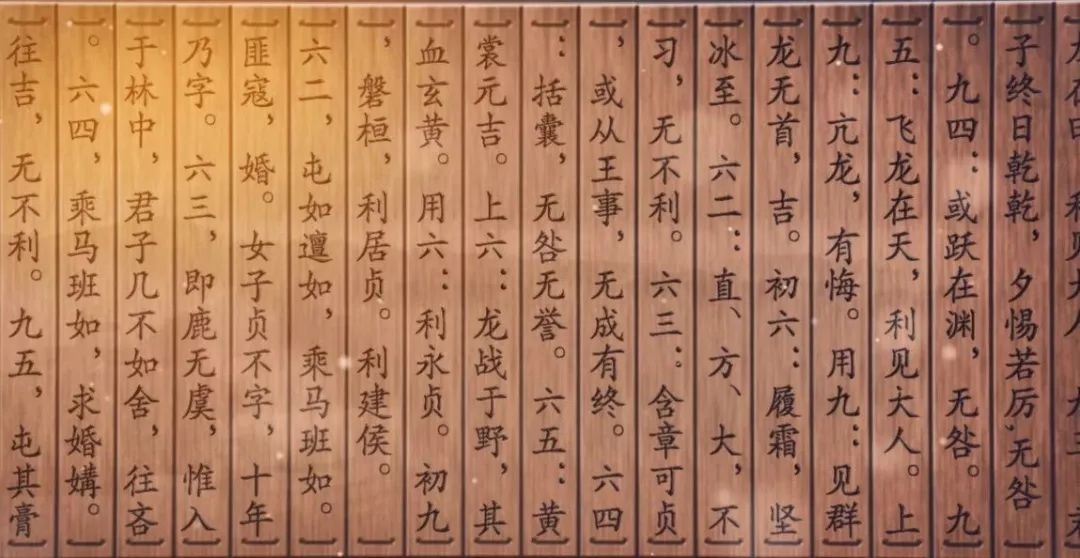 子终日乾乾，夕惕若厉,无咎
。九四：或跃在渊，无咎。九
五：飞龙在天，利见大人。上
九：亢龙，有悔。用九：见群
龙无首，吉。初六：履霜，坚
冰至。六二：直、方、大，不
习，无不利。六三：含章可贞
，或从王事，无成有终。六四
：括囊，无咎无誉。六五：黄
裳元吉。上六：龙战于野，其
血玄黄。用六：利永贞。初九
，磐桓，利居贞。利建侯。
六二，屯如邅如，乘马班如。
匪寇，婚。女子贞不字，十年
乃字。六三，即鹿无虞，惟入
于林中，君子几不如舍，往吝
。六四，乘马班如，求婚媾。
往吉，无不利。九五，屯其膏